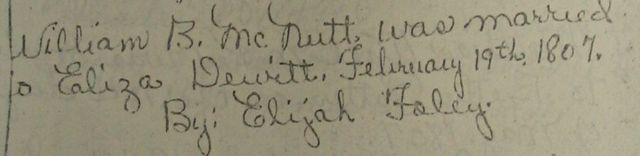 William B. Mc.Nutt, was married
to Ealiza Dewitt, February 19th. 1807.
By: Elijah Foley.